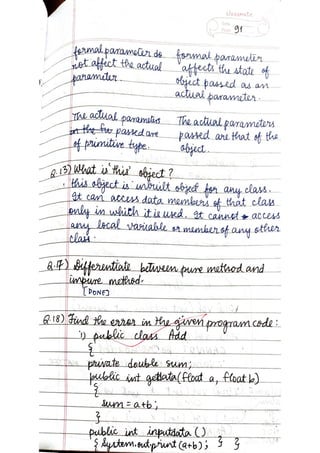 classmate
Date
Page 91
formal parameter do formal parameter
not affect the actual affects the state of
parameter. object passed as an
actual parameter.
The actual parameters The actual parameters
in the fu passed are passed are that of the
of primitive type. object.
Q.13) What is 'this' object?
this object is inbuilt object for any class.
It can access data members of that class
only in which it is used. It cannot access
any local variable or member of any other
class.
Q.17) Differentiate between pure method and
impure method.
[DONE]
Q.18) Find the error in the given program code:
i) public class Add
{
private double sum;
public int getdata(float a, float b)
{
sum = a+b;
}
public int inputdata ()
{ System.out.print (a+b); } }